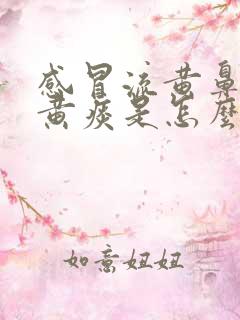 感冒流黄鼻
黄痰是怎麼
如意妞妞